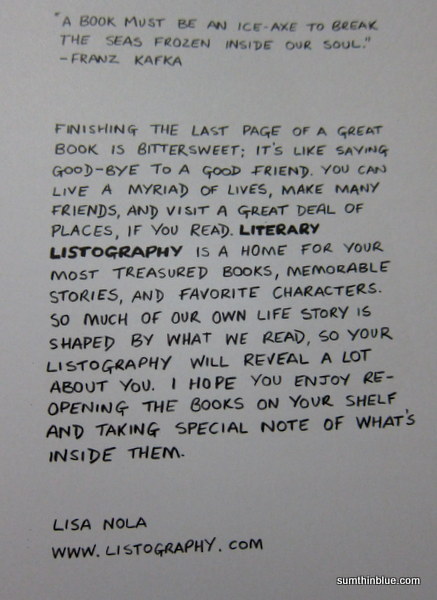 "A BOOK MUST BE AN ICE-AXE TO BREAK
THE SEAS FROZEN INSIDE OUR SOUL."
-FRANZ KAFKA
FINISHING THE LAST PAGE OF A GREAT
BOOK IS BITTERSWEET; IT'S LIKE SAYING
GOOD-BYE TO A GOOD FRIEND. YOU CAN
LIVE A MYRIAD OF LIVES, MAKE MANY
FRIENDS, AND VISIT A GREAT DEAL OF
PLACES, IF YOU READ. LITERARY
LISTOGRAPHY IS A HOME FOR YOUR
MOST TREASURED BOOKS, MEMORABLE
STORIES, AND FAVORITE CHARACTERS.
SO MUCH OF OUR OWN LIFE STORY IS
SHAPED BY WHAT WE READ, SO YOUR
LISTOGRAPHY WILL REVEAL A LOT
ABOUT YOU. I HOPE YOU ENJOY RE-
OPENING THE BOOKS ON YOUR SHELF
AND TAKING SPECIAL NOTE OF WHAT'S
INSIDE THEM.
LISA NOLA
WWW.LISTOGRAPHY.COM
sumthinblue.com